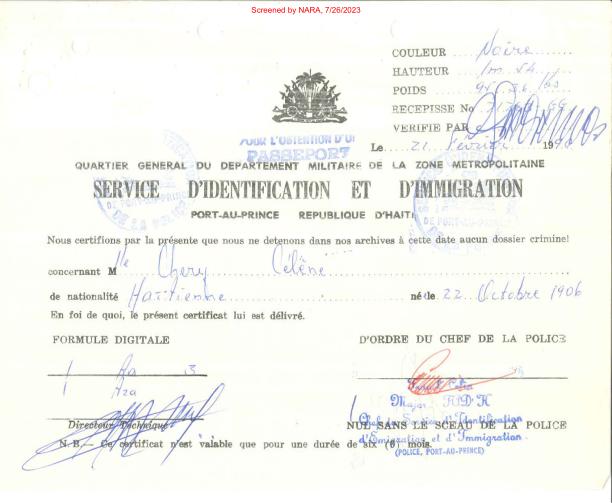 Screened by NARA, 7/26/2023
COULEUR Noire
HAUTEUR 1m 54
POIDS
RECEPISSE No
VERIFIE PAR
POUR L'OBTENTION D'UN
PASSEPORT
Le 21 Février 19
QUARTIER GENERAL DU DEPARTEMENT MILITAIRE DE LA ZONE METROPOLITAINE
SERVICE D'IDENTIFICATION ET D'IMMIGRATION
PORT-AU-PRINCE REPUBLIQUE D'HAITI
Nous certifions par la présente que nous ne detenons dans nos archives à cette date aucun dossier criminel
concernant Mlle Chery Célène
de nationalité Haïtienne né le 22 Octobre 1906
En foi de quoi, le présent certificat lui est délivré.
FORMULE DIGITALE
D'ORDRE DU CHEF DE LA POLICE
1 Aa 3
1 Aza
Major FADH
Directeur Technique
NUL SANS LE SCEAU DE LA POLICE
Chef du Service d'Identification
d'Emigration et d'Immigration
N.B.— Ce certificat n'est valable que pour une durée de six (6) mois.
(POLICE, PORT-AU-PRINCE)